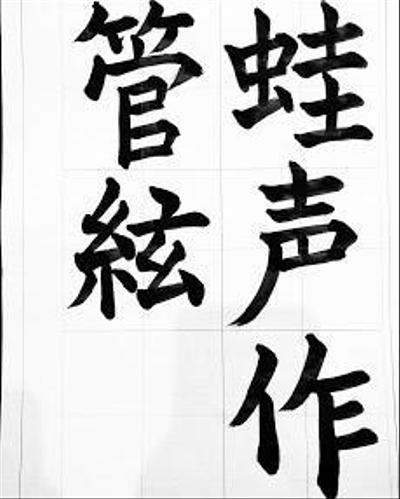 蛙声作
管絃